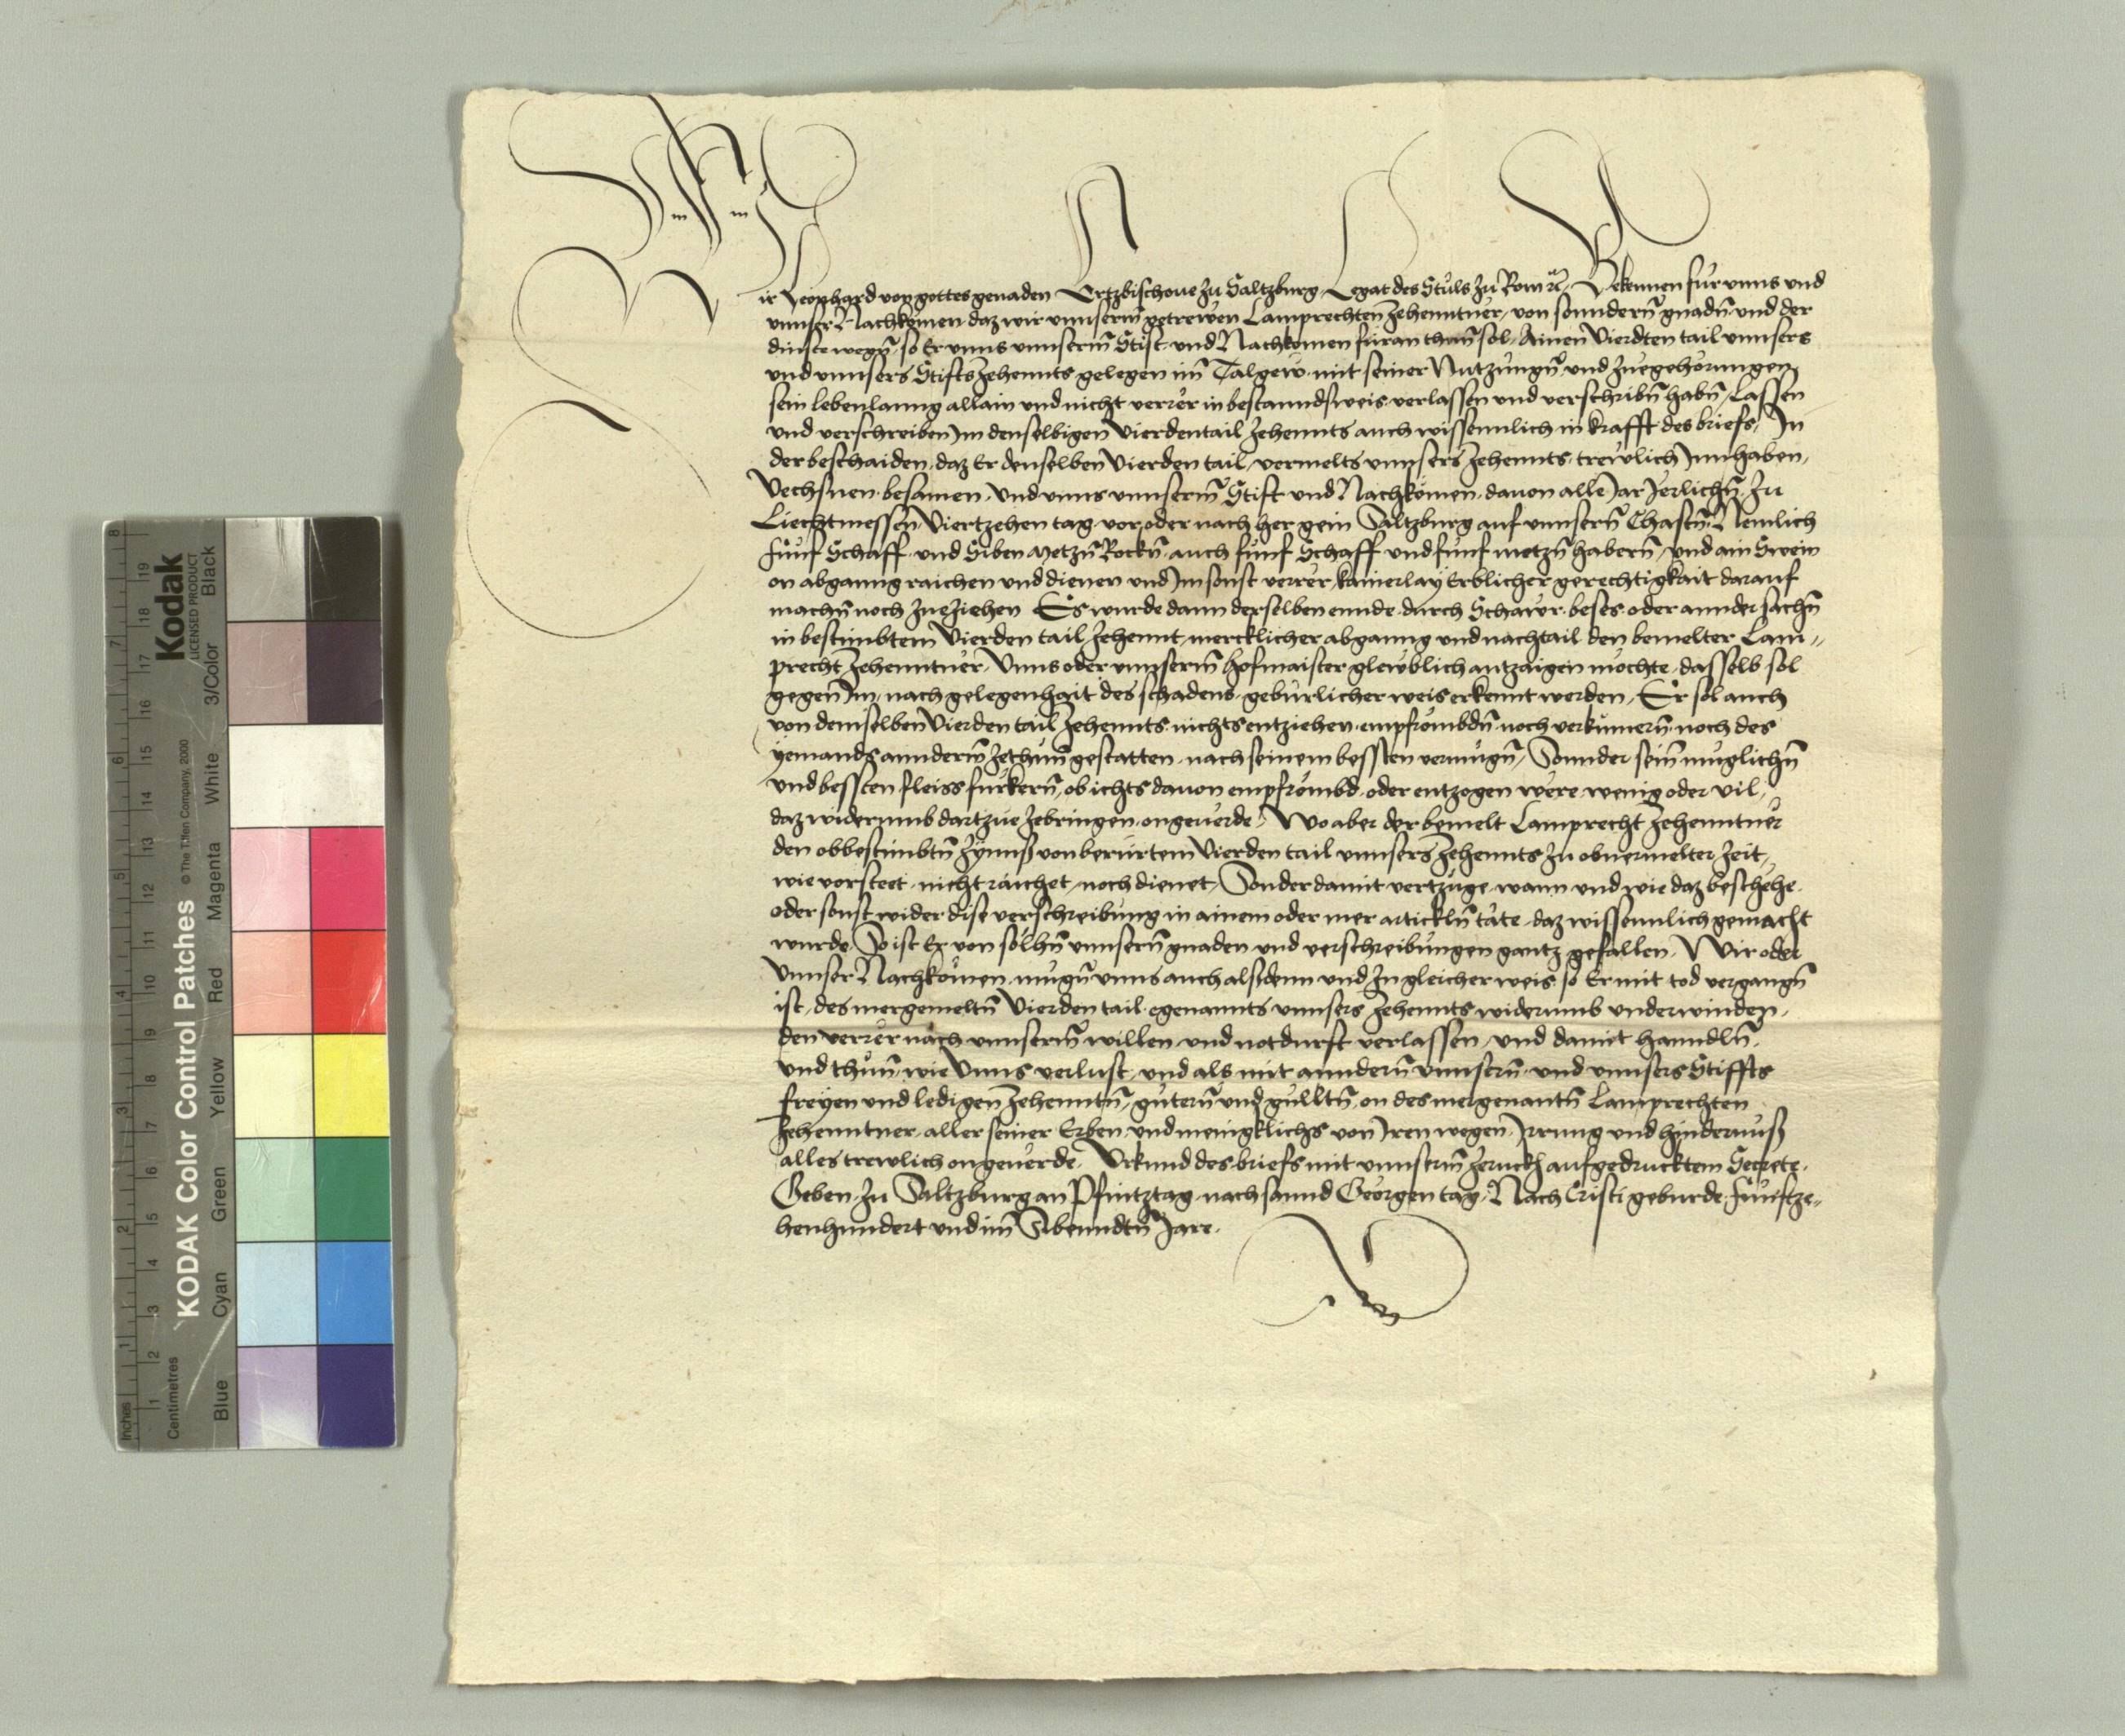 Wir Leonhard von gottes genaden Ertzbischoue zu Saltzburg Legat des Stuls zu Rom ꝛc Bekennen für vnns vnd
vnnser Nachkomen daz wir vnnserm̄ getrewen Lamprechten Zehenntner, von sonndern̄ gnadn̄ vnd der
dinste wegn̄, so Er vnns vnnserm̄ Stift vnd Nachkomen füran thun̄ sol, Ainen Vierdten tail vnnsers
vnd vnnsers Stifts Zehennts gelegen im̄ Talgew, mit seiner Nutzungn̄ vnd zuegehorungen,
sein lebenlanng allain vnd nicht verrer in bestanndsweis verlassen vnd verschribn̄ habn̄, Lassen
vnd verschreiben Im denselbigen Vierdentail Zehennts auch wissennlich in krafft des briefs, In
der beschaiden, daz Er denselben Vierden tail, vermelts vnnsers Zehennts, trewlich Innhaben,
Vechsnen, besamen, Vnd vnns vnnserm̄ Stift vnd Nachkömen, dauon alle Jar Jerlichn̄, zu
Liechtmessen, Viertzehen tag, vor oder nach her gein Saltzburg auf vnnsern̄ Chastn̄, Nemlich
fünf Schaff, vnd Siben Metzn̄ Rockn̄, auch fünf Schaff vnd fünf metzn̄ habern̄, vnd ain Swein
on abganng raichen vnd dienen vnd Im sonst verrer, kainerlay Erblicher gerechtigkait darauf
machn̄ noch zueziehen Es wurde dann derselben ennde, durch Schawr, beses, oder annder sachn̄
in bestimbtem Vierden tail Zehennt, mercklicher abganng vnd nachtail den bemelter Lam-
precht Zehenntner, Vnns oder vnnserm̄ hofmaister glewblich antzaigen möchte, dasselb sol
gegen Im, nach gelegenhait des schadens, gebürlicher weis erkennt werden, Er sol auch
von demselben Vierden tail Zehennts, nichts entziehen, empfrömbdn̄, noch verkümern̄, noch des
yemands annderm̄ zethun̄ gestatten, nach seinem bessten vermügn̄, Sonnder sein̄ muglichn̄
vnd bessten fleiss fürkern̄, ob ichts dauon empfrömbd, oder entzogen were, wenig oder vil,
daz widerumb dartzue zebringen, ongeuerde, Wo aber der bemelt Lamprecht Zehenntner
den obbestimbtn̄ Zynnß von berürtem Vierden tail vnnsers Zehennts zu obuermelter Zeit,
wie vorsteet, nicht raichet, noch dienet, Sonder damit vertzuge, wann vnd wie daz beschehe,
oder sonst wider dise verschreibung in ainem oder mer articklń täte, daz wissennlich gemacht
wurde, So ist Er von sölhn̄ vnnsern̄ gnaden vnd verschreibungen gantz gefallen, Wir oder
Vnnser Nachkömen, mugn̄ vnns auch alsdenn vnd zu gleicher weis, so Er mit tod vergangn̄
ist, des mergemeltn̄ Vierden tail, egenannts vnnsers Zehennts, widerumb vnderwinden,
den verrer nach vnnserm̄ willen vnd notdurft verlassen, vnd damit hanndln̄,
vnd thun̄, wie Vnns verlust, vnd als mit anndern̄ vnnsern̄, vnd vnnsers Stiffts
freyen vnd ledigen Zehenntn̄, gütern̄ vnd gülltn̄, on des mergenantn̄ Lamprechten
Zehenntner, aller seiner Erben, vnd menigklichs von Iren wegen, Irrung vnd hindernuß
alles trewlich ongeuerde, Vrkund des briefs mit vnnserm̄ zerugk aufgedrucktem Secrete,
Geben zu Saltzburg an Pfintztag nach sannd Georgen tag, Nach Cristi geburde, fünftze-
henhundert vnd im̄ Sibenndtn̄ Jare.